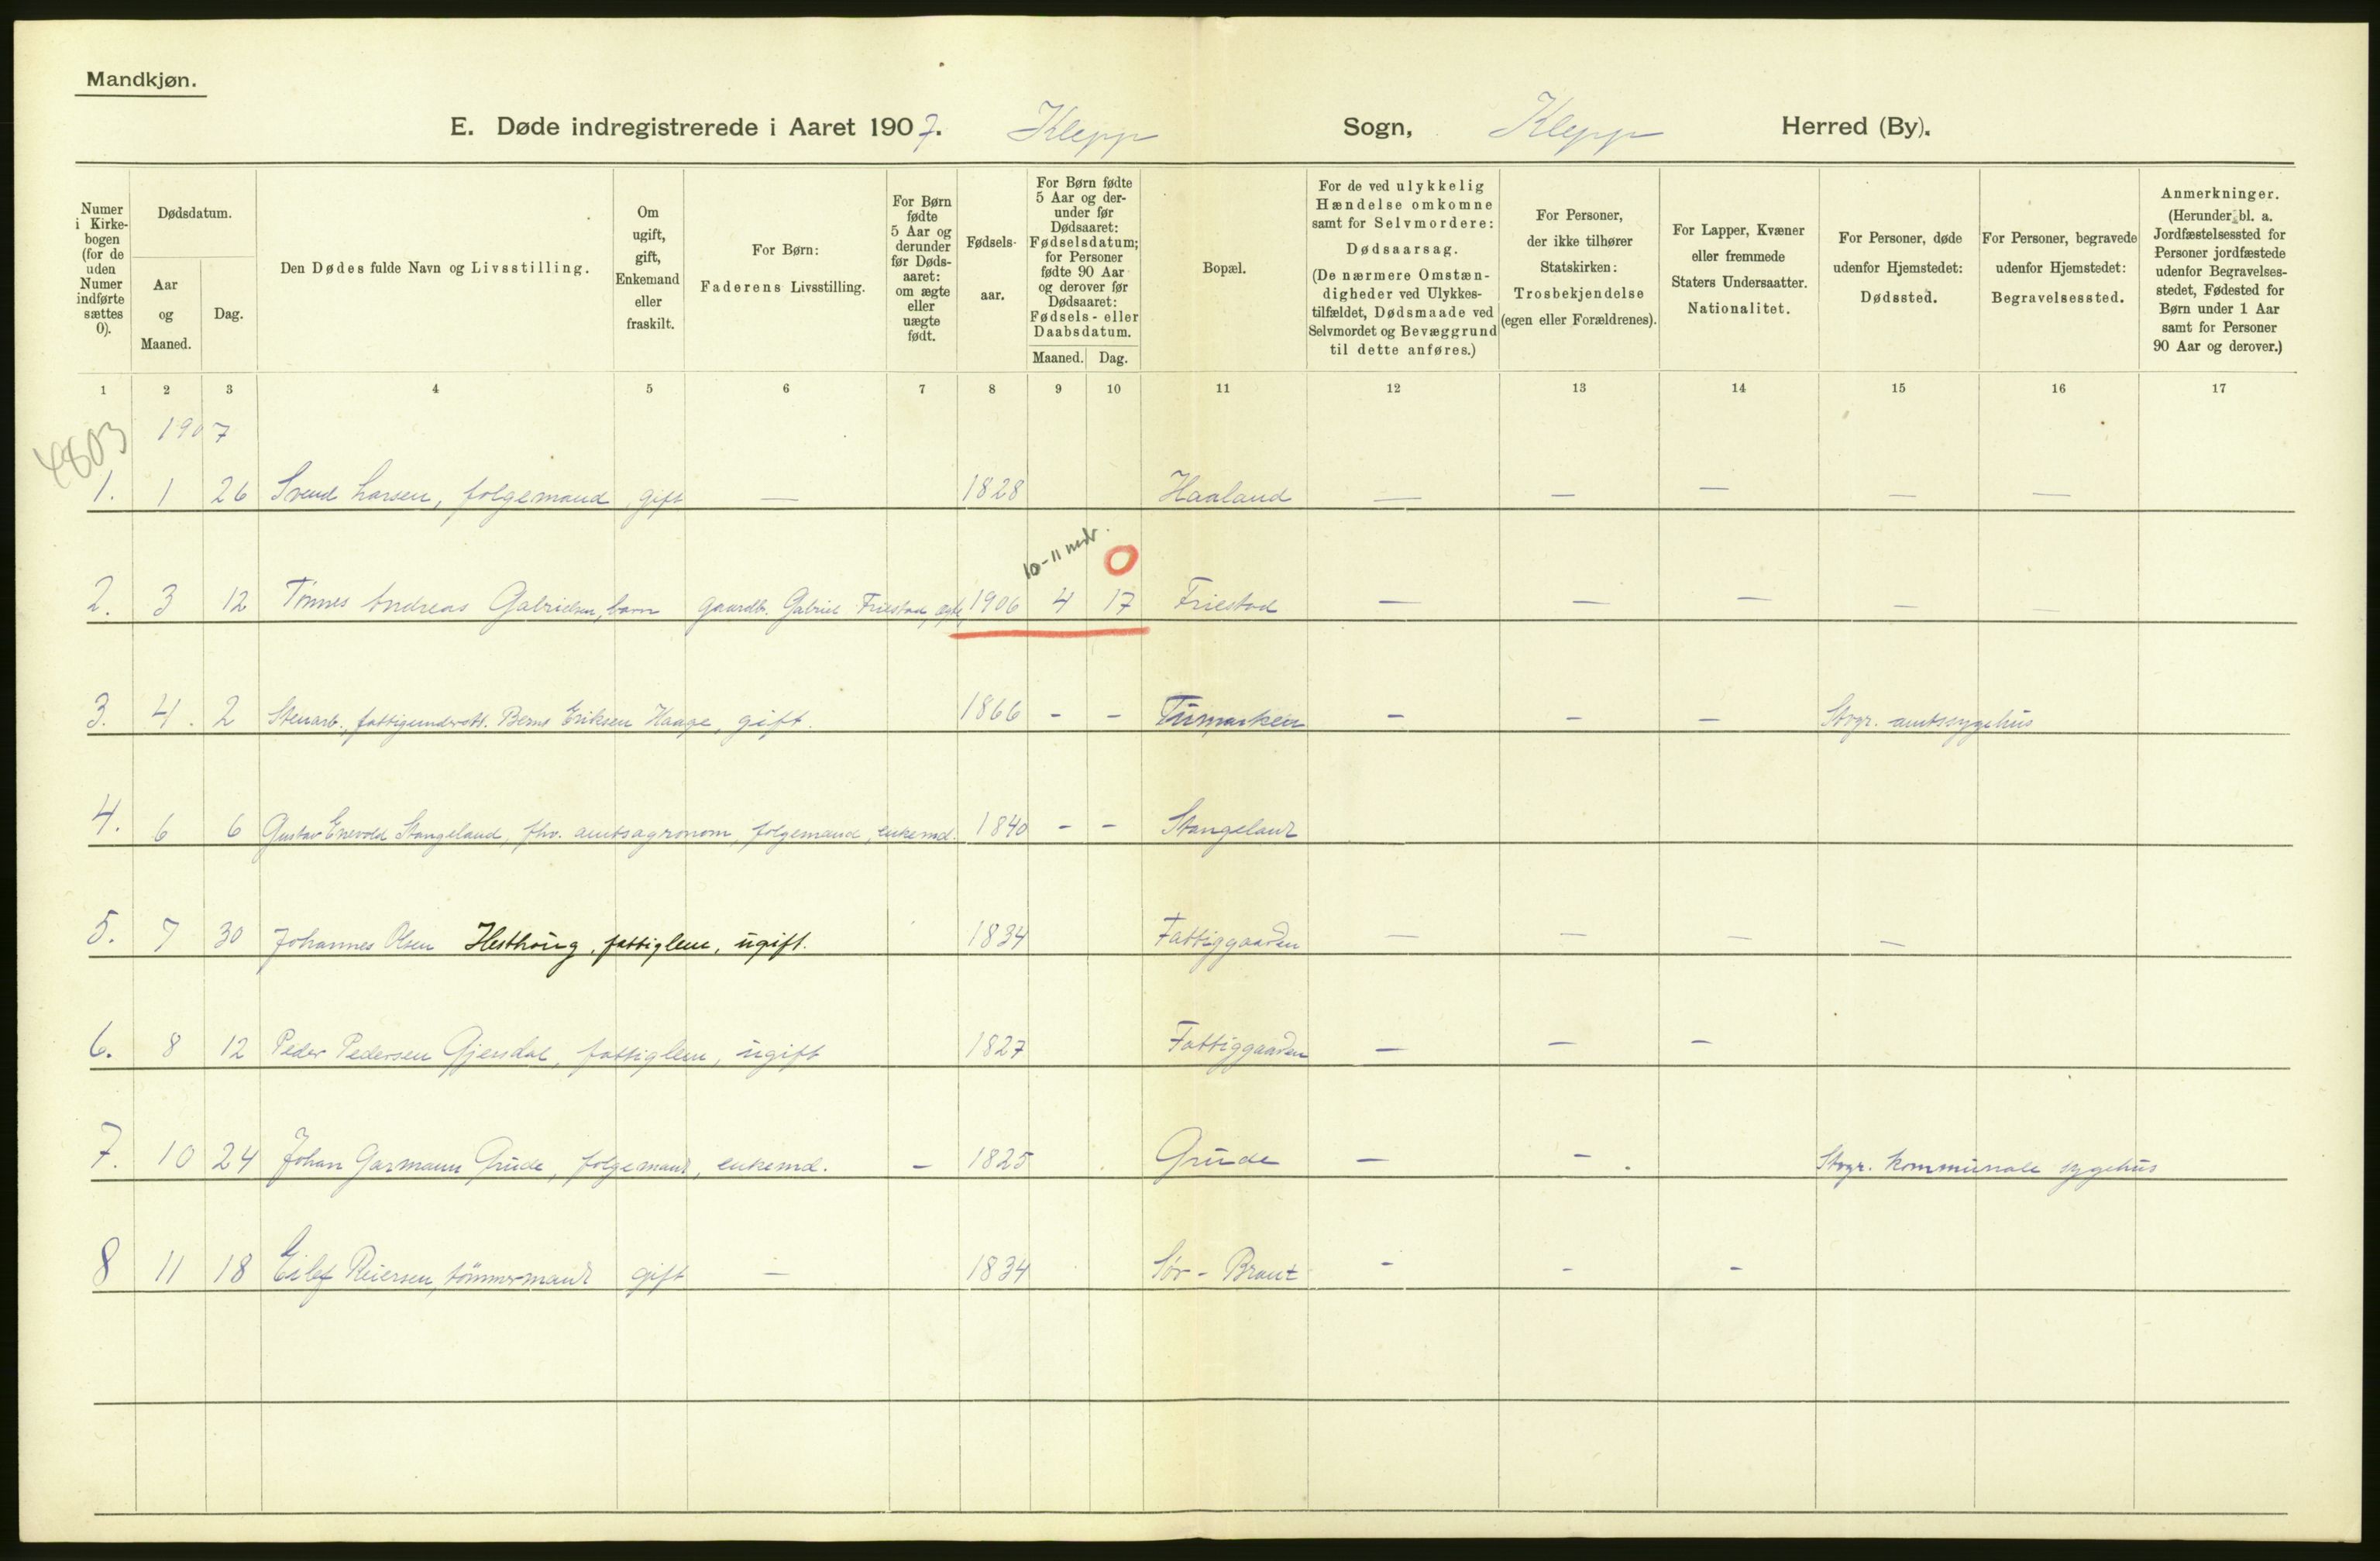 Mandkjøn.
E. Døde indregistrerede i Aaret 1907. Klepp Sogn, Klepp Herred (By).
Numer i Kirkebogen (for de uden Numer indførte sættes 0).
Dødsdatum.
Aar og Maaned.
Dag.
Den Dødes fulde Navn og Livsstilling.
Om ugift, gift, Enkemand eller fraskilt.
For Børn: Faderens Livsstilling.
For Børn fødte 5 Aar og derunder før Dødsaaret: om ægte eller uægte født.
Fødselsaar.
For Børn fødte 5 Aar og derunder før Dødsaaret: Fødselsdatum; for Personer fødte 90 Aar og derover før Dødsaaret: Fødsels- eller Daabsdatum.
Maaned. Dag.
Bopæl.
For de ved ulykkelig Hændelse omkomne samt for Selvmordere: Dødsaarsag. (De nærmere Omstændigheder ved Ulykkestilfældet, Dødsmaade ved Selvmordet og Bevæggrund til dette anføres.)
For Personer, der ikke tilhører Statskirken: Trosbekjendelse (egen eller Forældrenes).
For Lapper, Kvæner eller fremmede Staters Undersaatter. Nationalitet.
For Personer, døde udenfor Hjemstedet: Dødssted.
For Personer, begravede udenfor Hjemstedet: Begravelsessted.
Anmerkninger. (Herunder bl. a. Jordfæstelsessted for Personer jordfæstede udenfor Begravelsesstedet, Fødested for Børn under 1 Aar samt for Personer 90 Aar og derover.)
1 2 3 4 5 6 7 8 9 10 11 12 13 14 15 16 17
4803
1907
1. 1 26 Svend Larsen, folgemand, gift — 1828 Haaland — — — — —
10-11 mdr. 0
2. 3 12 Tønnes Andreas Gabrielsen, barn gaardb. Gabriel Friestad, ægte, 1906 4 17 Friestad — — — — —
3. 4. 2 Stenarb., fattigunderst. Bernt Eriksen Haage, gift. 1866 - - - - - Stvgr. amtssygehus
4. 6 6 Gustav Enevold Stangeland, fhv. amtsagronom, folgemand, enkemd. 1840 - - Stangeland
5. 7 30 Johannes Olsen Hesthoug, fattiglem, ugift. 1834 Fattiggaarden — — — —
6. 8 12 Peder Pedersen Gjesdal, fattiglem, ugift 1827 Fattiggaarden — — —
7. 10 24 Johan Garmann Grude, folgemand, enkemd. - 1825 Grude — - . Stvgr. kommunale sygehus
8 11 18 Eilef Reiersen, tømmermand gift — 1834 Sør-Braut - - -